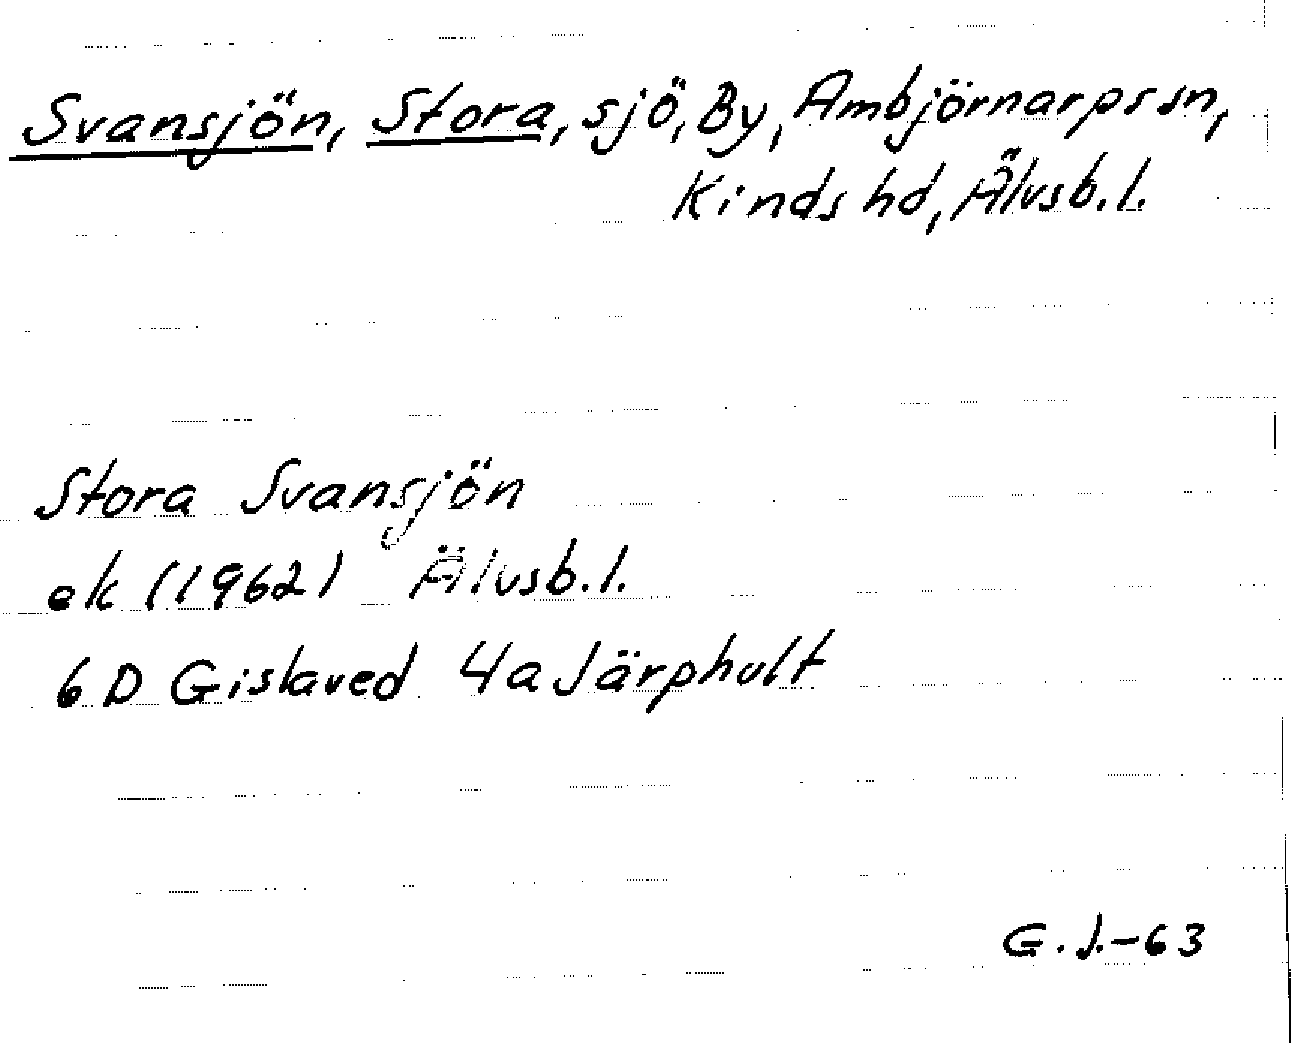 Svansjön, Stora, sjö, By, Ambjörnarps sn,
Kinds hd, Älvsb. l.
Stora Svansjön
ek (1962) Älvsb. l.
6 D Gislaved 4a Järphult
G. J. -63